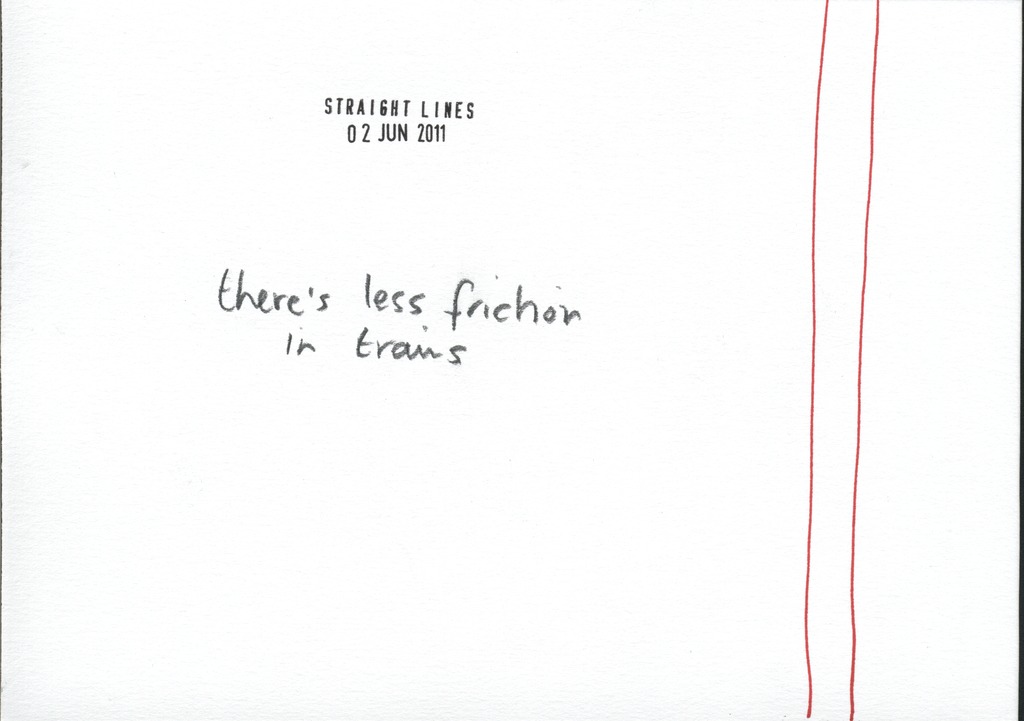 STRAIGHT LINES
02 JUN 2011
there's less friction
in trains